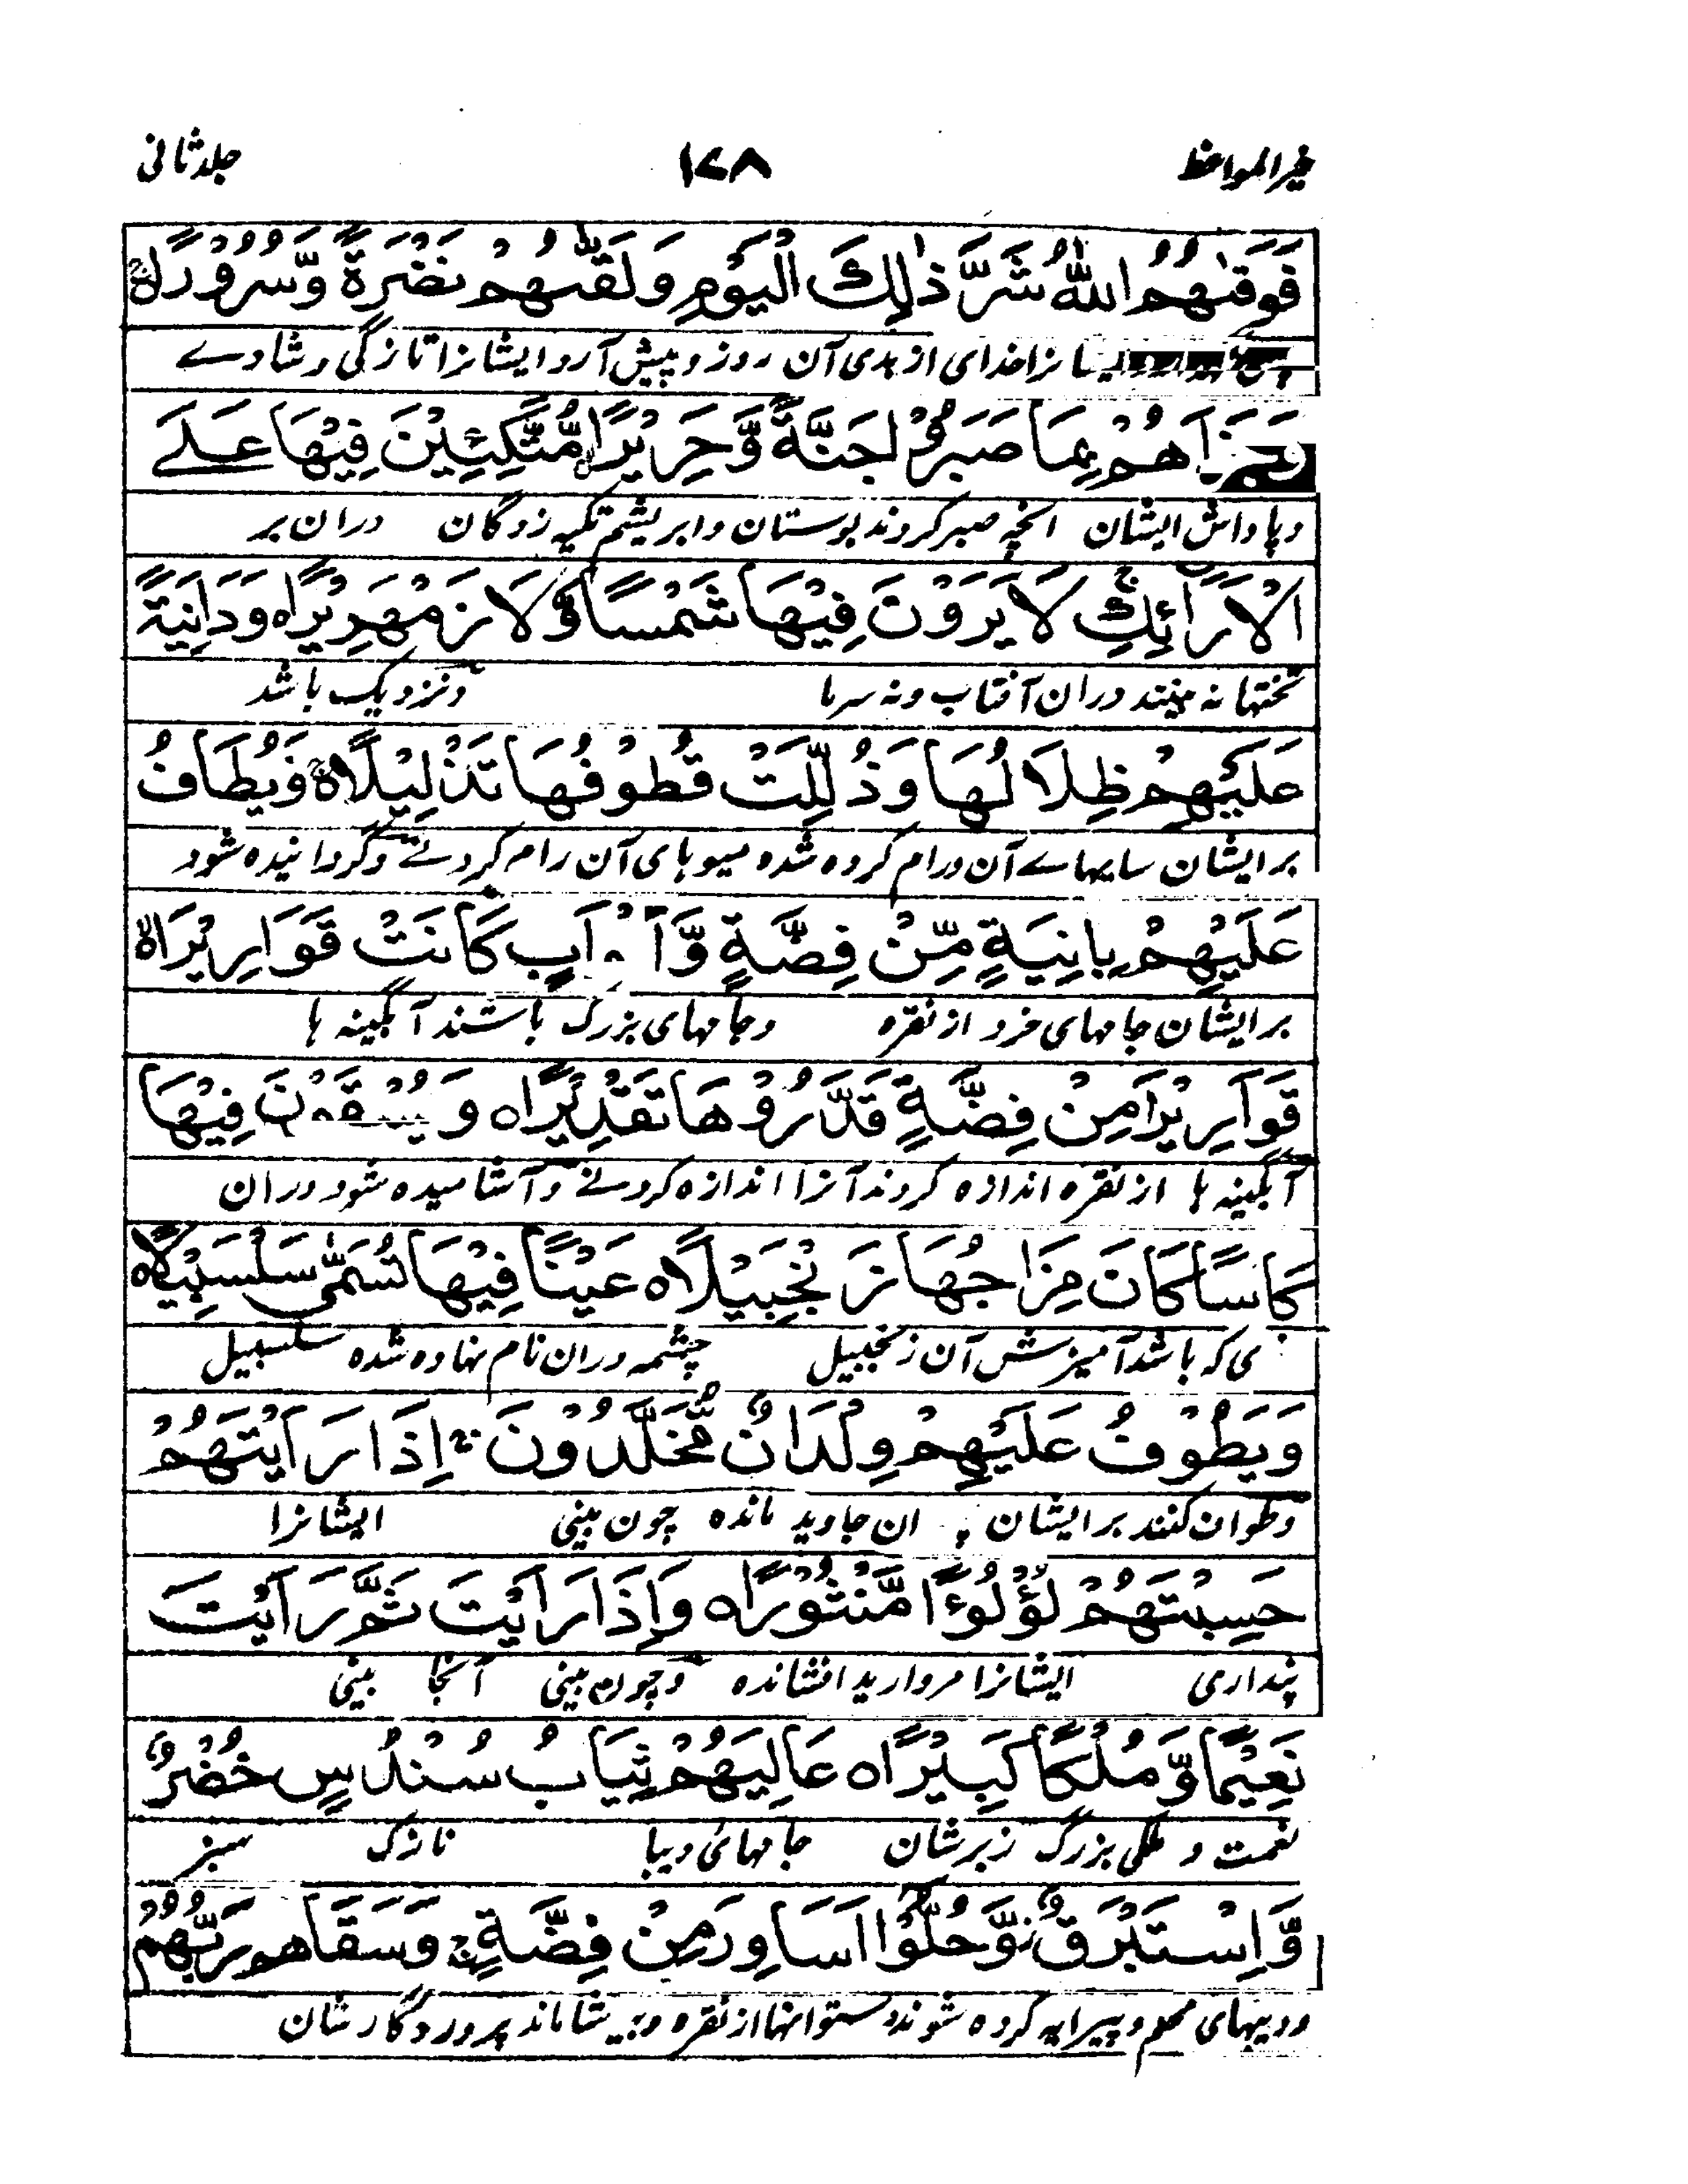 خیرالمواعظ ۱۷۸ جلد ثانی
فَوَقٰىهُمُ اللّٰهُ شَرَّ ذٰلِكَ الْيَوْمِ وَلَقّٰىهُمْ نَضْرَةً وَّسُرُوْرًا
ایشانرا خدای از بدی آن روز و پیش آرد ایشانرا تازگی و شادے
وَجَزَاهُمْ بِمَا صَبَرُوْا جَنَّةً وَّحَرِيْرًا مُّتَّكِئِيْنَ فِيْهَا عَلَے
و پاداش ایشان انچه صبر کردند بوستان و ابریشم تکیه زدگان دران بر
الْاَرَآئِكِ لَا يَرَوْنَ فِيْهَا شَمْسًا وَّلَا زَمْهَرِيْرًا٥ وَدَانِيَةً
تختها نه بینند دران آفتاب و نه سرما و نزدیک باشد
عَلَيْهِمْ ظِلَالُهَا وَذُلِّلَتْ قُطُوْفُهَا تَذْلِيْلًا٥ وَيُطَافُ
بر ایشان سایهاے آن و رام کرده شده میوهای آن رام کردنے و گردانیده شود
عَلَيْهِمْ بِاٰنِيَةٍ مِّنْ فِضَّةٍ وَّاَكْوَابٍ كَانَتْ قَوَارِيْرَا٥
بر ایشان جامهای خرد از نقره و جامهای بزرگ باشند آبگینه ها
قَوَارِيْرَا مِنْ فِضَّةٍ قَدَّرُوْهَا تَقْدِيْرًا٥ وَيُسْقَوْنَ فِيْهَا
آبگینه ها از نقره اندازه کردند آنرا اندازه کردنے و آشامیده شود دران
كَاْسًا كَانَ مِزَاجُهَا زَنْجَبِيْلًا٥ عَيْنًا فِيْهَا تُسَمّٰى سَلْسَبِيْلًا٥
ی که باشد آمیزش آن زنجبیل چشمه دران نام نهاده شده سلسبیل
وَيَطُوْفُ عَلَيْهِمْ وِلْدَانٌ مُّخَلَّدُوْنَ اِذَا رَاَيْتَهُمْ
و طواف کنند بر ایشان ان جاوید مانده چون بینی ایشانرا
حَسِبْتَهُمْ لُؤْلُؤًا مَّنْثُوْرًا٥ وَاِذَا رَاَيْتَ ثَمَّ رَاَيْتَ
پنداری ایشانرا مروارید افشانده و چون بینی آنجا بینی
نَعِيْمًا وَّمُلْكًا كَبِيْرًا٥ عَالِيَهُمْ ثِيَابُ سُنْدُسٍ خُضْرٌ
نعمت و ملکی بزرگ زبرشان جامهای دیبا نازک سبز
وَّاِسْتَبْرَقٌ وَّحُلُّوْا اَسَاوِرَ مِنْ فِضَّةٍ وَسَقَاهُمْ رَبُّهُمْ
و دیبهای محکم و پیرایه کرده شوند دستوانها از نقره و بیاشاماند پروردگارشان